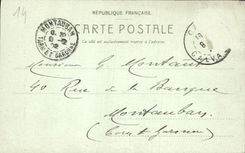 14
RÉPUBLIQUE FRANÇAISE
CARTE POSTALE
Ce côté est exclusivement réservé à l'adresse.
MONTAUBAN
TARN ET GARONNE
CALVA
Monsieur G. Montaut
40 Rue de la Banque
Montauban
Tarn et Garonne